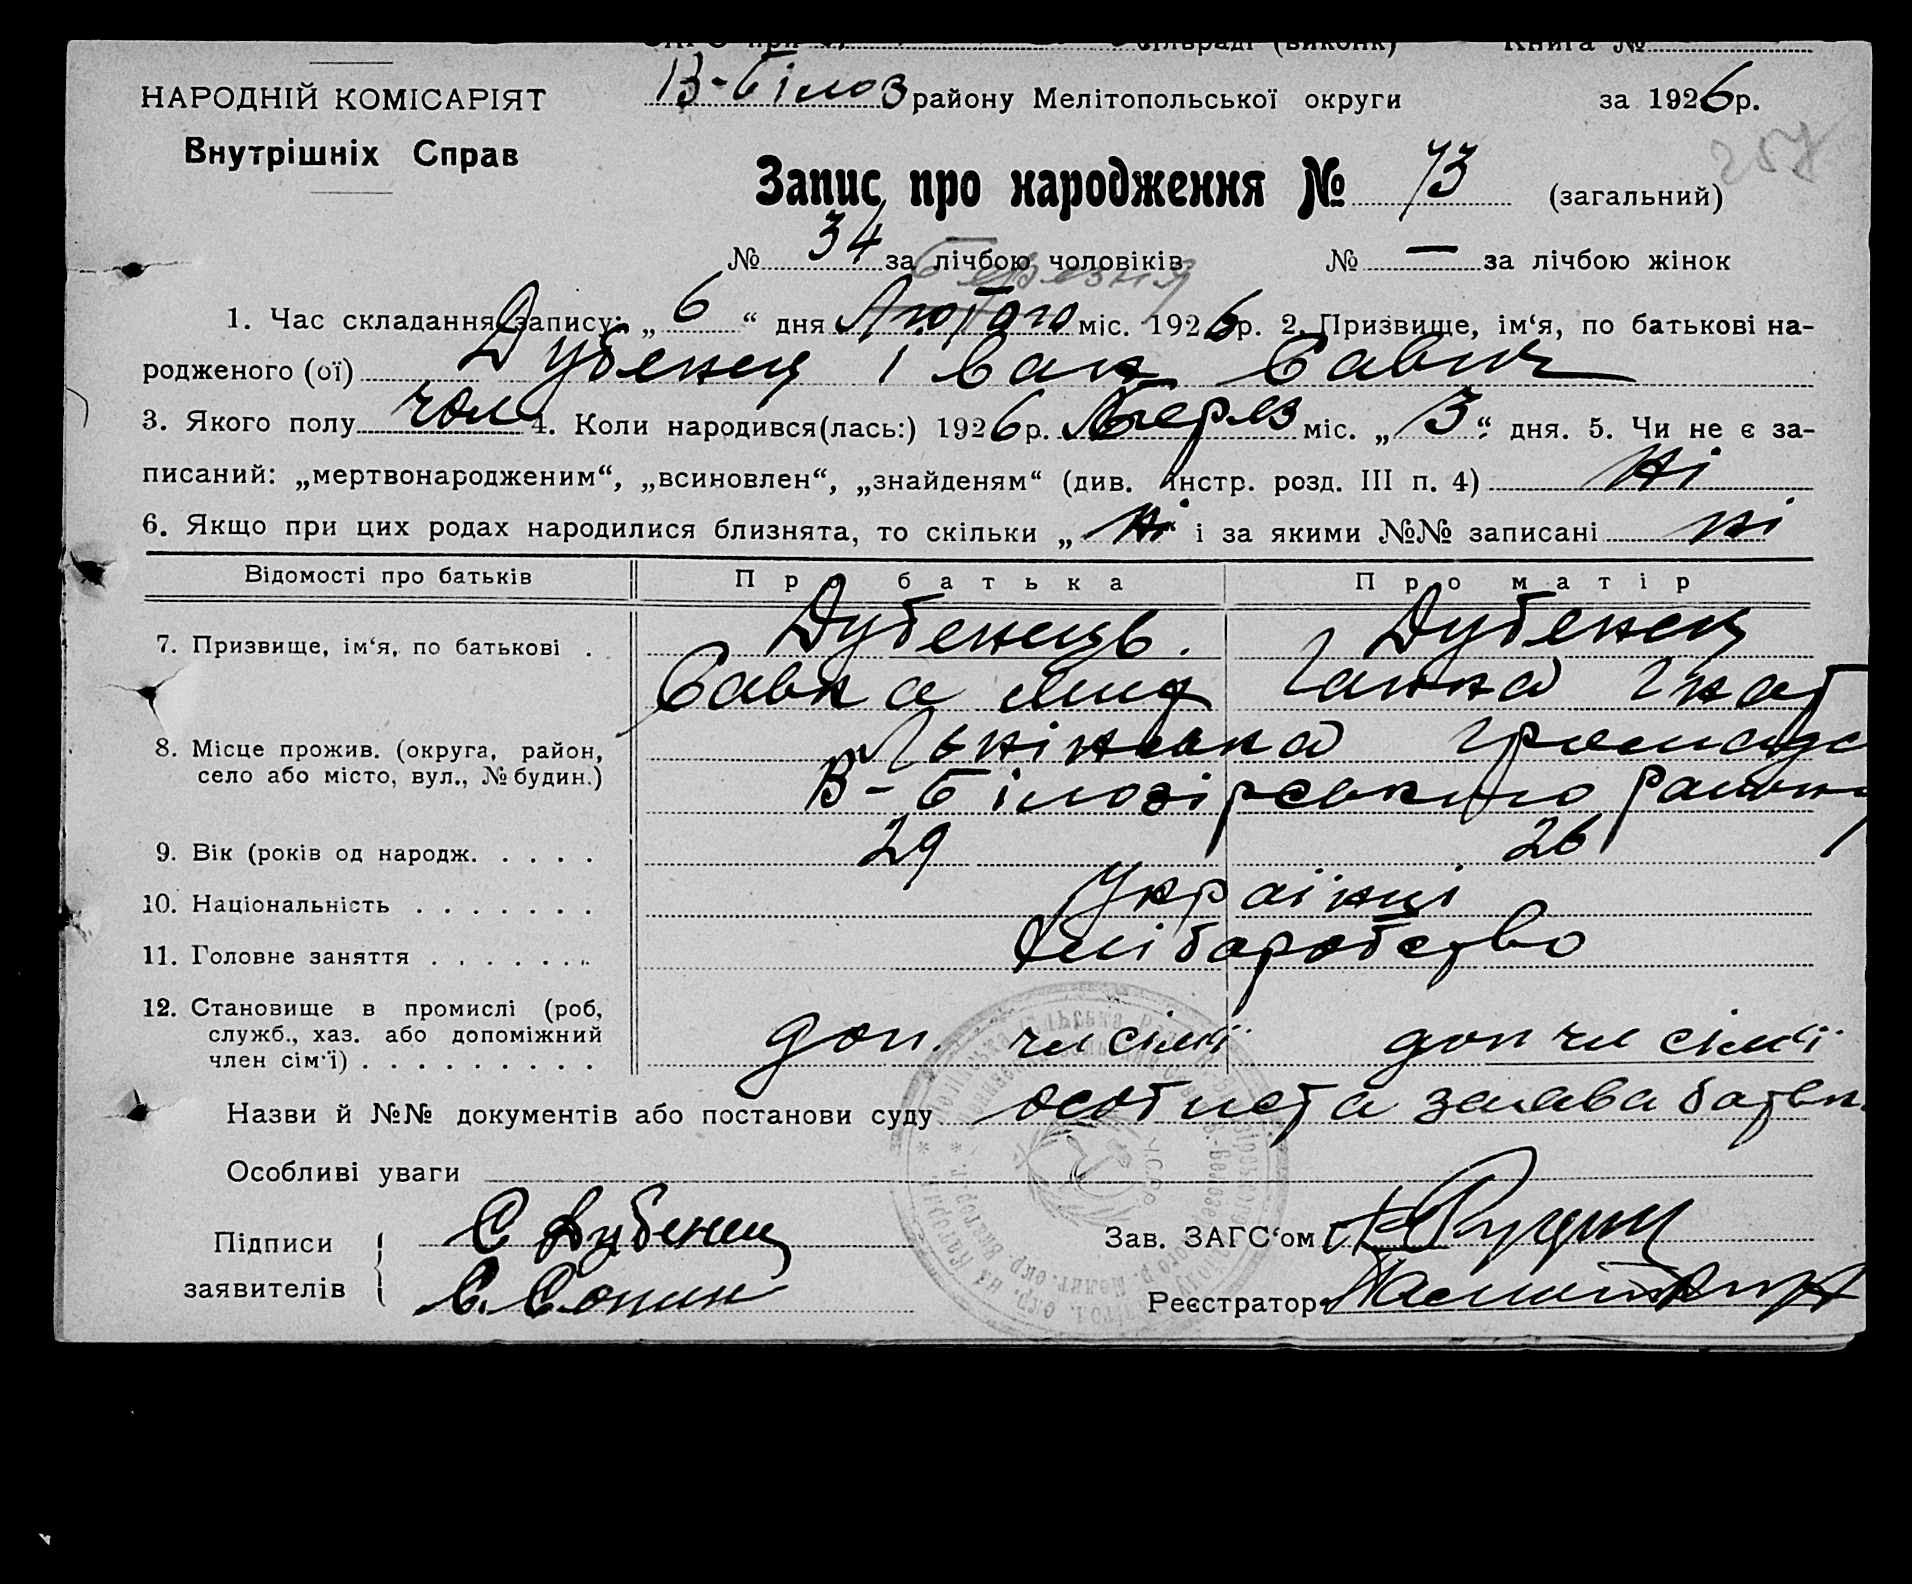 НАРОДНІЙ КОМІСАРІЯТ
Внутрішніх Справ
В-Білоз району Мелітопольської округи за 1926 р.
257
Запис про народження № 73 (загальний)
№ 34 за лічбою чоловіків № — за лічбою жінок
Березня
1. Час складання запису: „ 6 “ дня Лютого міс. 1926 р. 2. Призвище, ім‘я, по батькові на-
родженого (ої) Дубенец Іван Савич
3. Якого полу чол 4. Коли народився(лась:) 1926 р. Берез міс. „ 3 “ дня. 5. Чи не є за-
писаний: „мертвонародженим“, „всиновлен“, „знайденям“ (див. інстр. розд. III п. 4) Ні
6. Якщо при цих родах народилися близнята, то скільки „ Ні і за якими №№ записані ні
Відомості про батьків Про батька Про матір
7. Призвище, ім‘я, по батькові . Дубенець. Дубенец
Савка Ганна Гнат
8. Місце прожив. (округа, район, село або місто, вул., № будин.)
В-Білозірського району
9. Вік (років од народж. . . . . 29 26
10. Національність . . . . . . . Українці
11. Головне заняття . . . . . . . Хліборобство
12. Становище в промислі (роб, служб., хаз. або допоміжний член сім‘ї) . . . . . . . . . доп. чл сім‘ї доп чл сім‘ї
Назви й №№ документів або постанови суду особиста заява батьк.
Особливі уваги
Підписи С Дубенец Зав. ЗАГС‘ом
заявителів С. Реєстратор